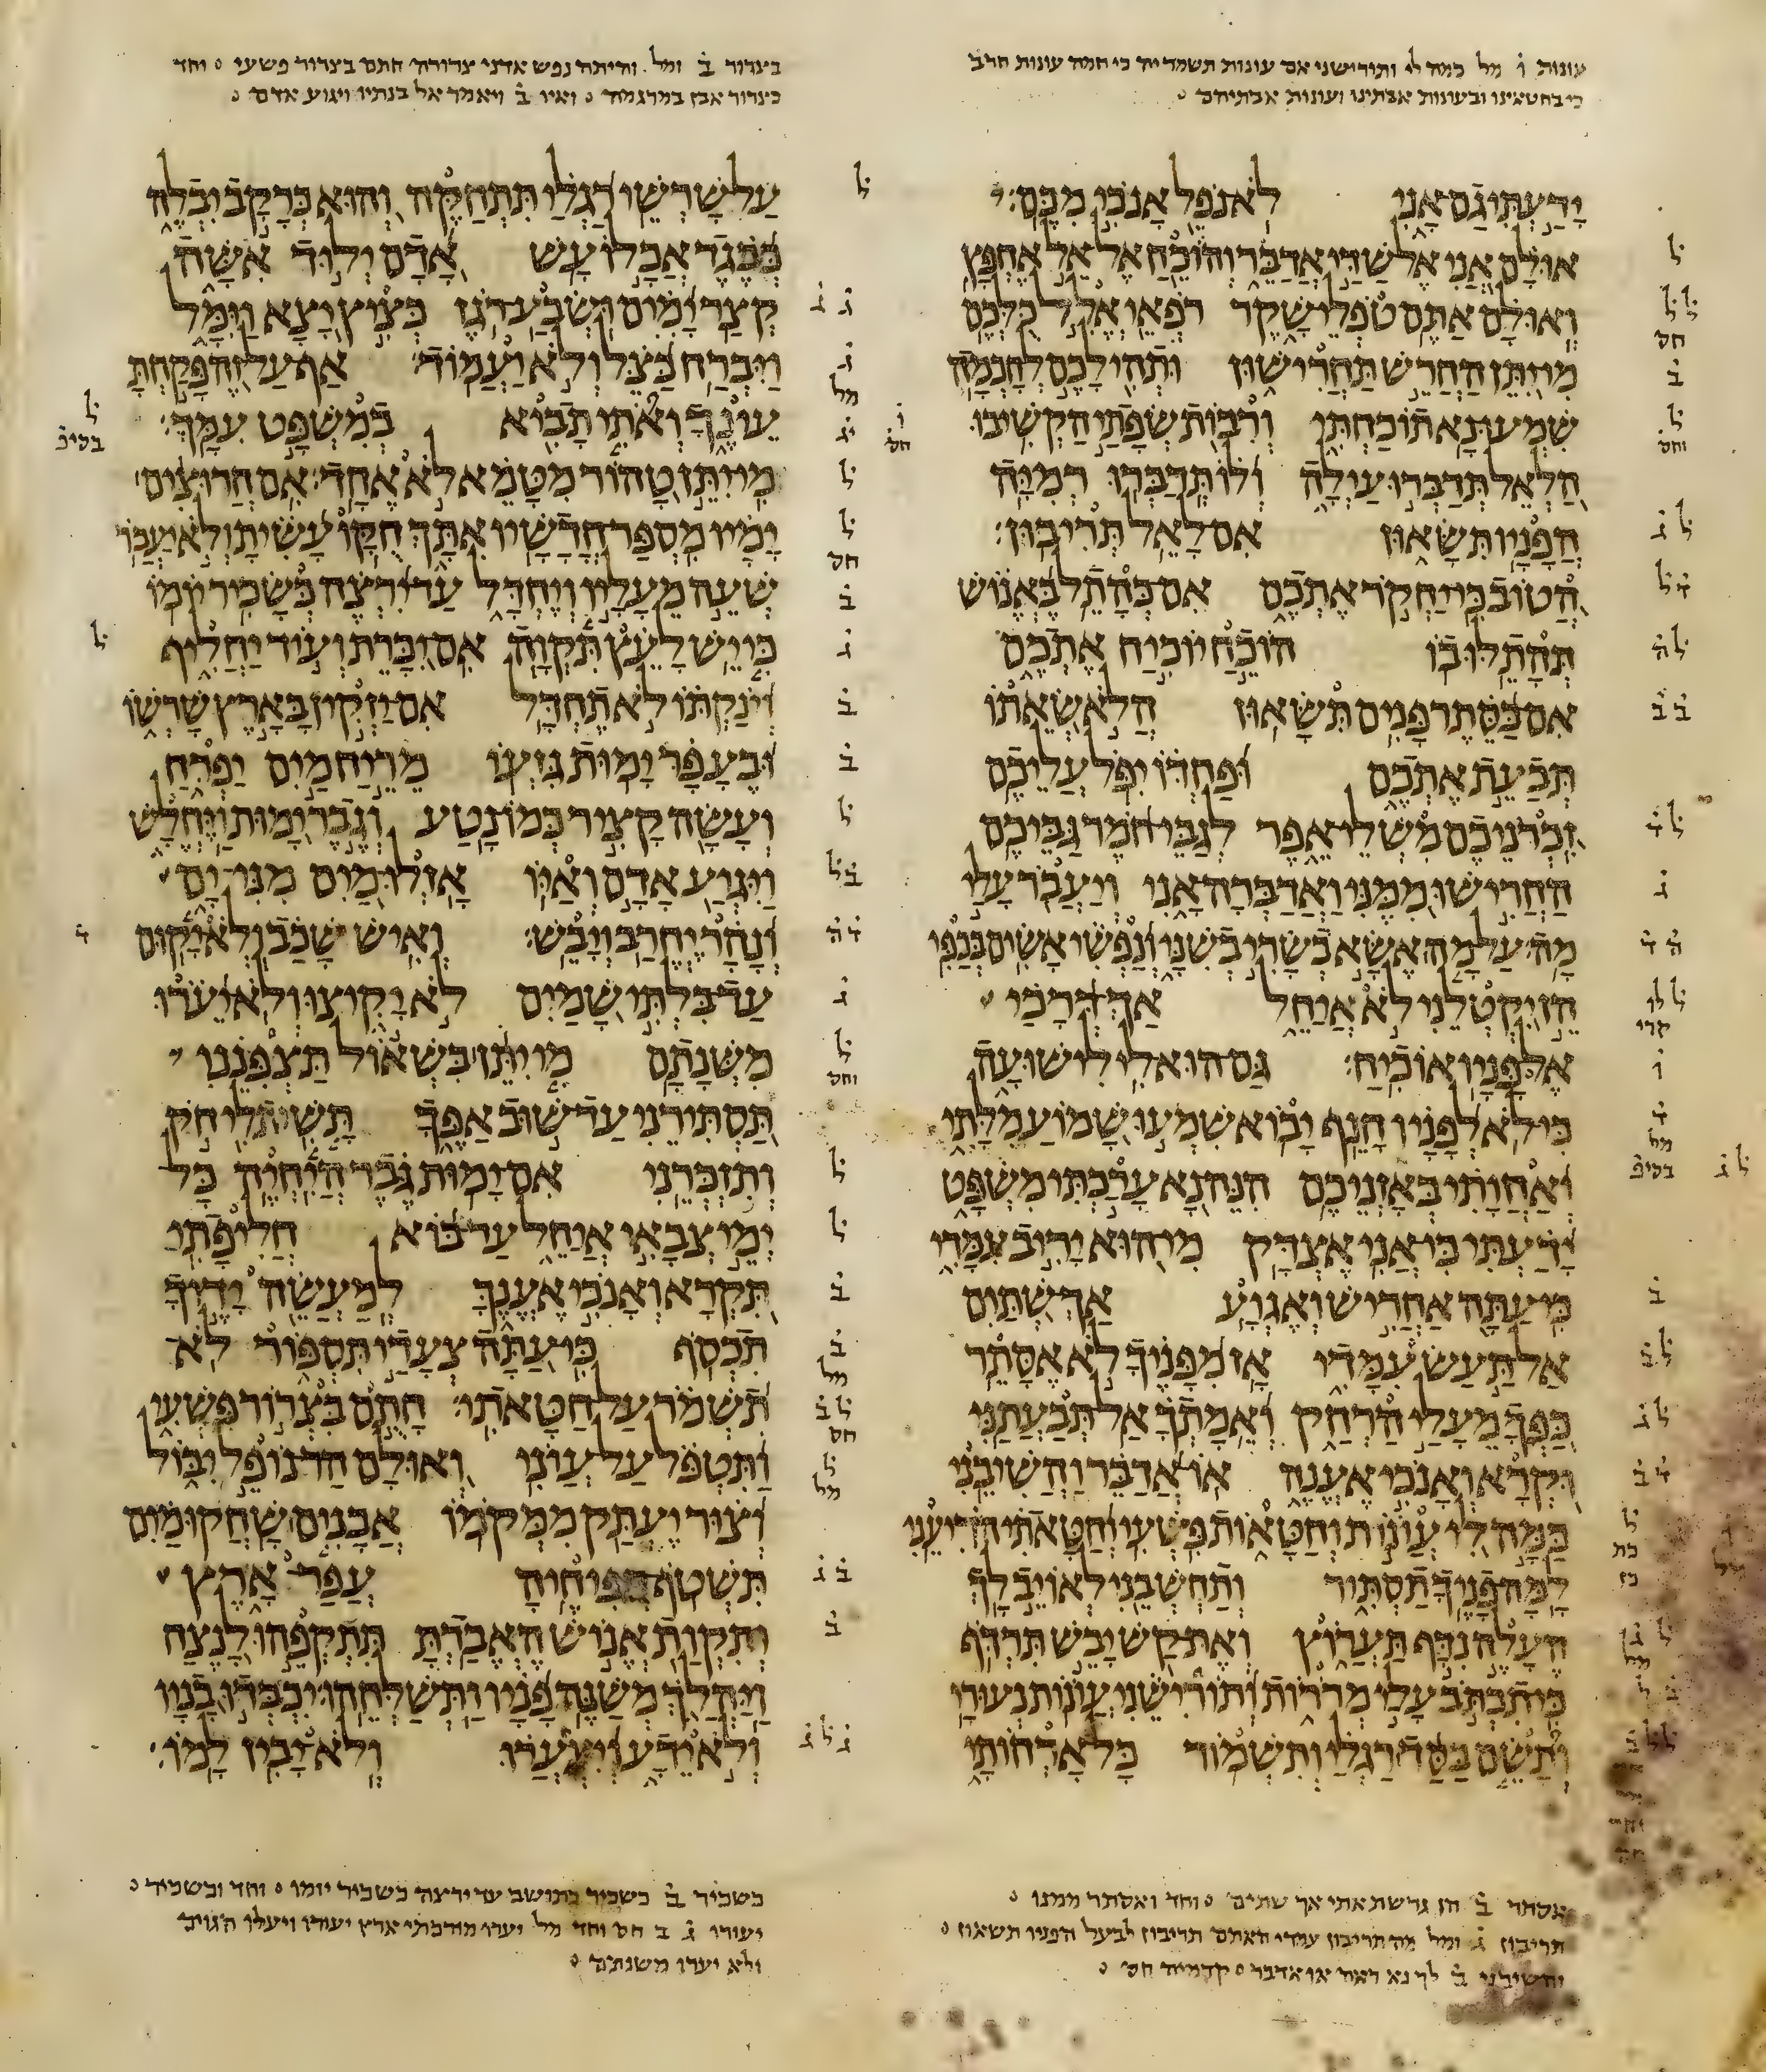 עונות ו מל כמה לי ותורישני אם עונות תשמר יה כי חמה עונות חרב
כי בחטאינו ובעונות אבתינו ועונות אבתיהם
ידעתי גם אני לא נפל אנכי מכם
אולם אני אל שדי אדבר והוכח אל אל אחפץ
ואולם אתם טפלי שקר רפאי אלל כלכם
מי יתן החרש תחרישון ותהי לכם לחכמה
שמעו נא תוכחתי ורבות שפתי הקשיבו
הלאל תדברו עולה ולו תדברו רמיה
הפניו תשאון אם לאל תריבון
הטוב כי יחקר אתכם אם כהתל באנוש
תהתלו בו הוכח יוכיח אתכם
אם בסתר פנים תשאון הלא שאתו
תבעת אתכם ופחדו יפל עליכם
זכרניכם משלי אפר לגבי חמר גביכם
החרישו ממני ואדברה אני ויעבר עלי
מה על מה אשא בשרי בשני ונפשי אשים בכפי
הן יקטלני לא איחל אך דרכי
אל פניו אוכיח גם הוא לי לישועה
כי לא לפניו חנף יבוא שמעו שמוע מלתי
ואחותי באזניכם הנה נא ערכתי משפט
ידעתי כי אני אצדק מי הוא יריב עמדי
כי עתה אחריש ואגוע אך שתים
אל תעש עמדי אז מפניך לא אסתר
כפך מעלי הרחק ואמתך אל תבעתני
וקרא ואנכי אענה או אדבר והשיבני
כמה לי עונות וחטאות פשעי וחטאתי הדיעני
למה פניך תסתיר ותחשבני לאויב לך
העלה נדף תערוץ ואת קש יבש תרדף
כי תכתב עלי מררות ותורישני עונות נעורי
ותשם בסד רגלי ותשמור כל ארחותי
אסתר ב הן גרשת אתי אך שתים וחד ואסתר ממנו
תריבון ג ומל מה תריבון עמדי האתם תריבון לבעל הפניו תשאון
והשיבני ב לך נא ראה או אדבר קדמיה חס
בצרור ב ומל והיתה נפש אדני צרורה חתם בצרור פשעי וחד
כצרור אבן במרגמה ואיו ב ויאמר אל בנתיו ויגוע אדם
על שרשי רגלי תתחקה והוא כרקב יבלה
כבגד אכלו עש אדם ילוד אשה
קצר ימים ושבע רגז כציץ יצא וימל
ויברח כצל ולא יעמוד אף על זה פקחת
עינך ואתי תביא במשפט עמך
מי יתן טהור מטמא לא אחד אם חרוצים
ימיו מספר חדשיו אתך חקו עשית ולא יעבר
שעה מעליו ויחדל עד ירצה כשכיר יומו
כי יש לעץ תקוה אם יכרת ועוד יחליף
וינקתו לא תחדל אם יזקין בארץ שרשו
ובעפר ימות גזעו מריח מים יפרח
ועשה קציר כמו נטע וגבר ימות ויחלש
ויגוע אדם ואיו אזלו מים מני ים
ונהר יחרב ויבש ואיש שכב ולא יקום
עד בלתי שמים לא יקיצו ולא יערו
משנתם מי יתן בשאול תצפנני
תסתירני עד שוב אפך תשית לי חק
ותזכרני אם ימות גבר היחיה כל
ימי צבאי איחל עד בוא חליפתי
תקרא ואנכי אענך למעשה ידיך
תכסף כי עתה צעדי תספור לא
תשמר על חטאתי חתם בצרור פשעי
ותטפל על עוני ואולם הר נופל יבול
וצור יעתק ממקמו אבנים שחקו מים
תשטף ספיחיה עפר ארץ
ותקות אנוש האבדת תתקפהו לנצח
ויהלך משנה פניו ותשלחהו יכבדו בניו
ולא ידע ויצערו ולא יבין למו
כשכיר ב כשכיר כתושב עד ירצה כשכיר יומו וחד ובשכיר
יעורו ג ב חס וחד מל יעורו מירכתי ארץ יעורו ויעלו הגוים
ולא יערו משנתם